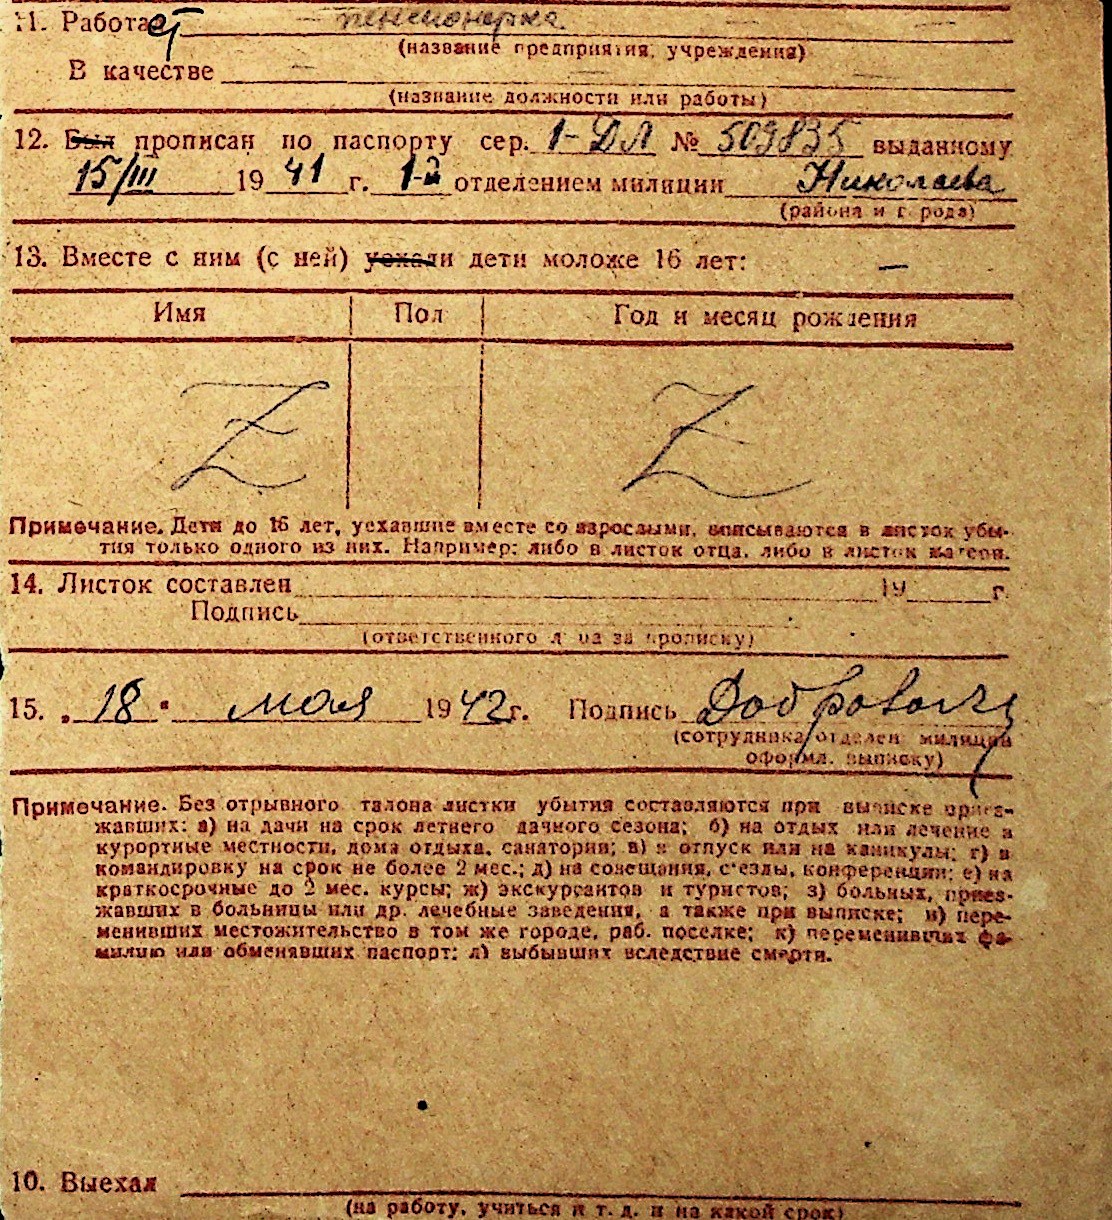 11. Работает пенсионерка
(название предприятия, учреждения)
В качестве —
(название должности или работы)
12. Был прописан по паспорту сер. 1-ДЛ № 509835 выданному
15/III 1941 г. 1-й отделением милиции Николаева
(района и города)
13. Вместе с ним (с ней) уехали дети моложе 16 лет: —
Имя Пол Год и месяц рождения
Z Z
Примечание. Дети до 16 лет, уехавшие вместе со взрослыми, вписываются в листок убы-
тия только одного из них. Например: либо в листок отца, либо в листок матери.
14. Листок составлен 19 г.
Подпись
(ответственного лица за прописку)
15. „18" мая 1942 г. Подпись
(сотрудника отделен. милиции
оформл. выписку)
Примечание. Без отрывного талона листки убытия составляются при выписке приез-
жавших: а) на дачи на срок летнего дачного сезона; б) на отдых или лечение в
курортные местности, дома отдыха, санатории; в) в отпуск или на каникулы; г) в
командировку на срок не более 2 мес.; д) на совещания, с'езды, конференции; е) на
краткосрочные до 2 мес. курсы; ж) экскурсантов и туристов; з) больных, приез-
жавших в больницы или др. лечебные заведения, а также при выписке; и) пере-
менивших местожительство в том же городе, раб. поселке; к) переменивших фа-
милию или обменявших паспорт; л) выбывших вследствие смерти.
10. Выехал
(на работу, учиться и т. д. и на какой срок)